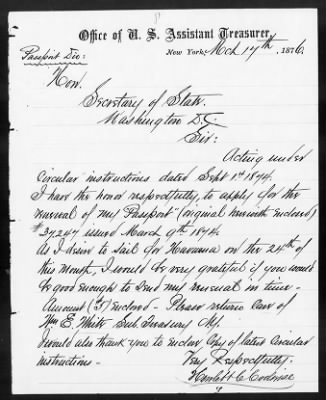 Office of U. S. Assistant Treasurer,
Passport Div:
New York, Mch 17th, 1876.
Hon.
Secretary of State.
Washington D.C.
Sir:
Acting under
Circular instructions dated Sept 1st 1874.
I have the honor respectfully, to apply for the
renewal of my Passport (original herewith enclosed)
#37247 issued March 9th 1874.
As I desire to sail for Havana on the 24th of
this Month, I would be very grateful if you would
be good enough to send my renewal in time.
Amount (5) Enclosed - Please return Care of
Wm E. White Sub. Treasury NY.
I would also thank you to enclose Copy of latest Circular
instructions -
Very Respectfully.